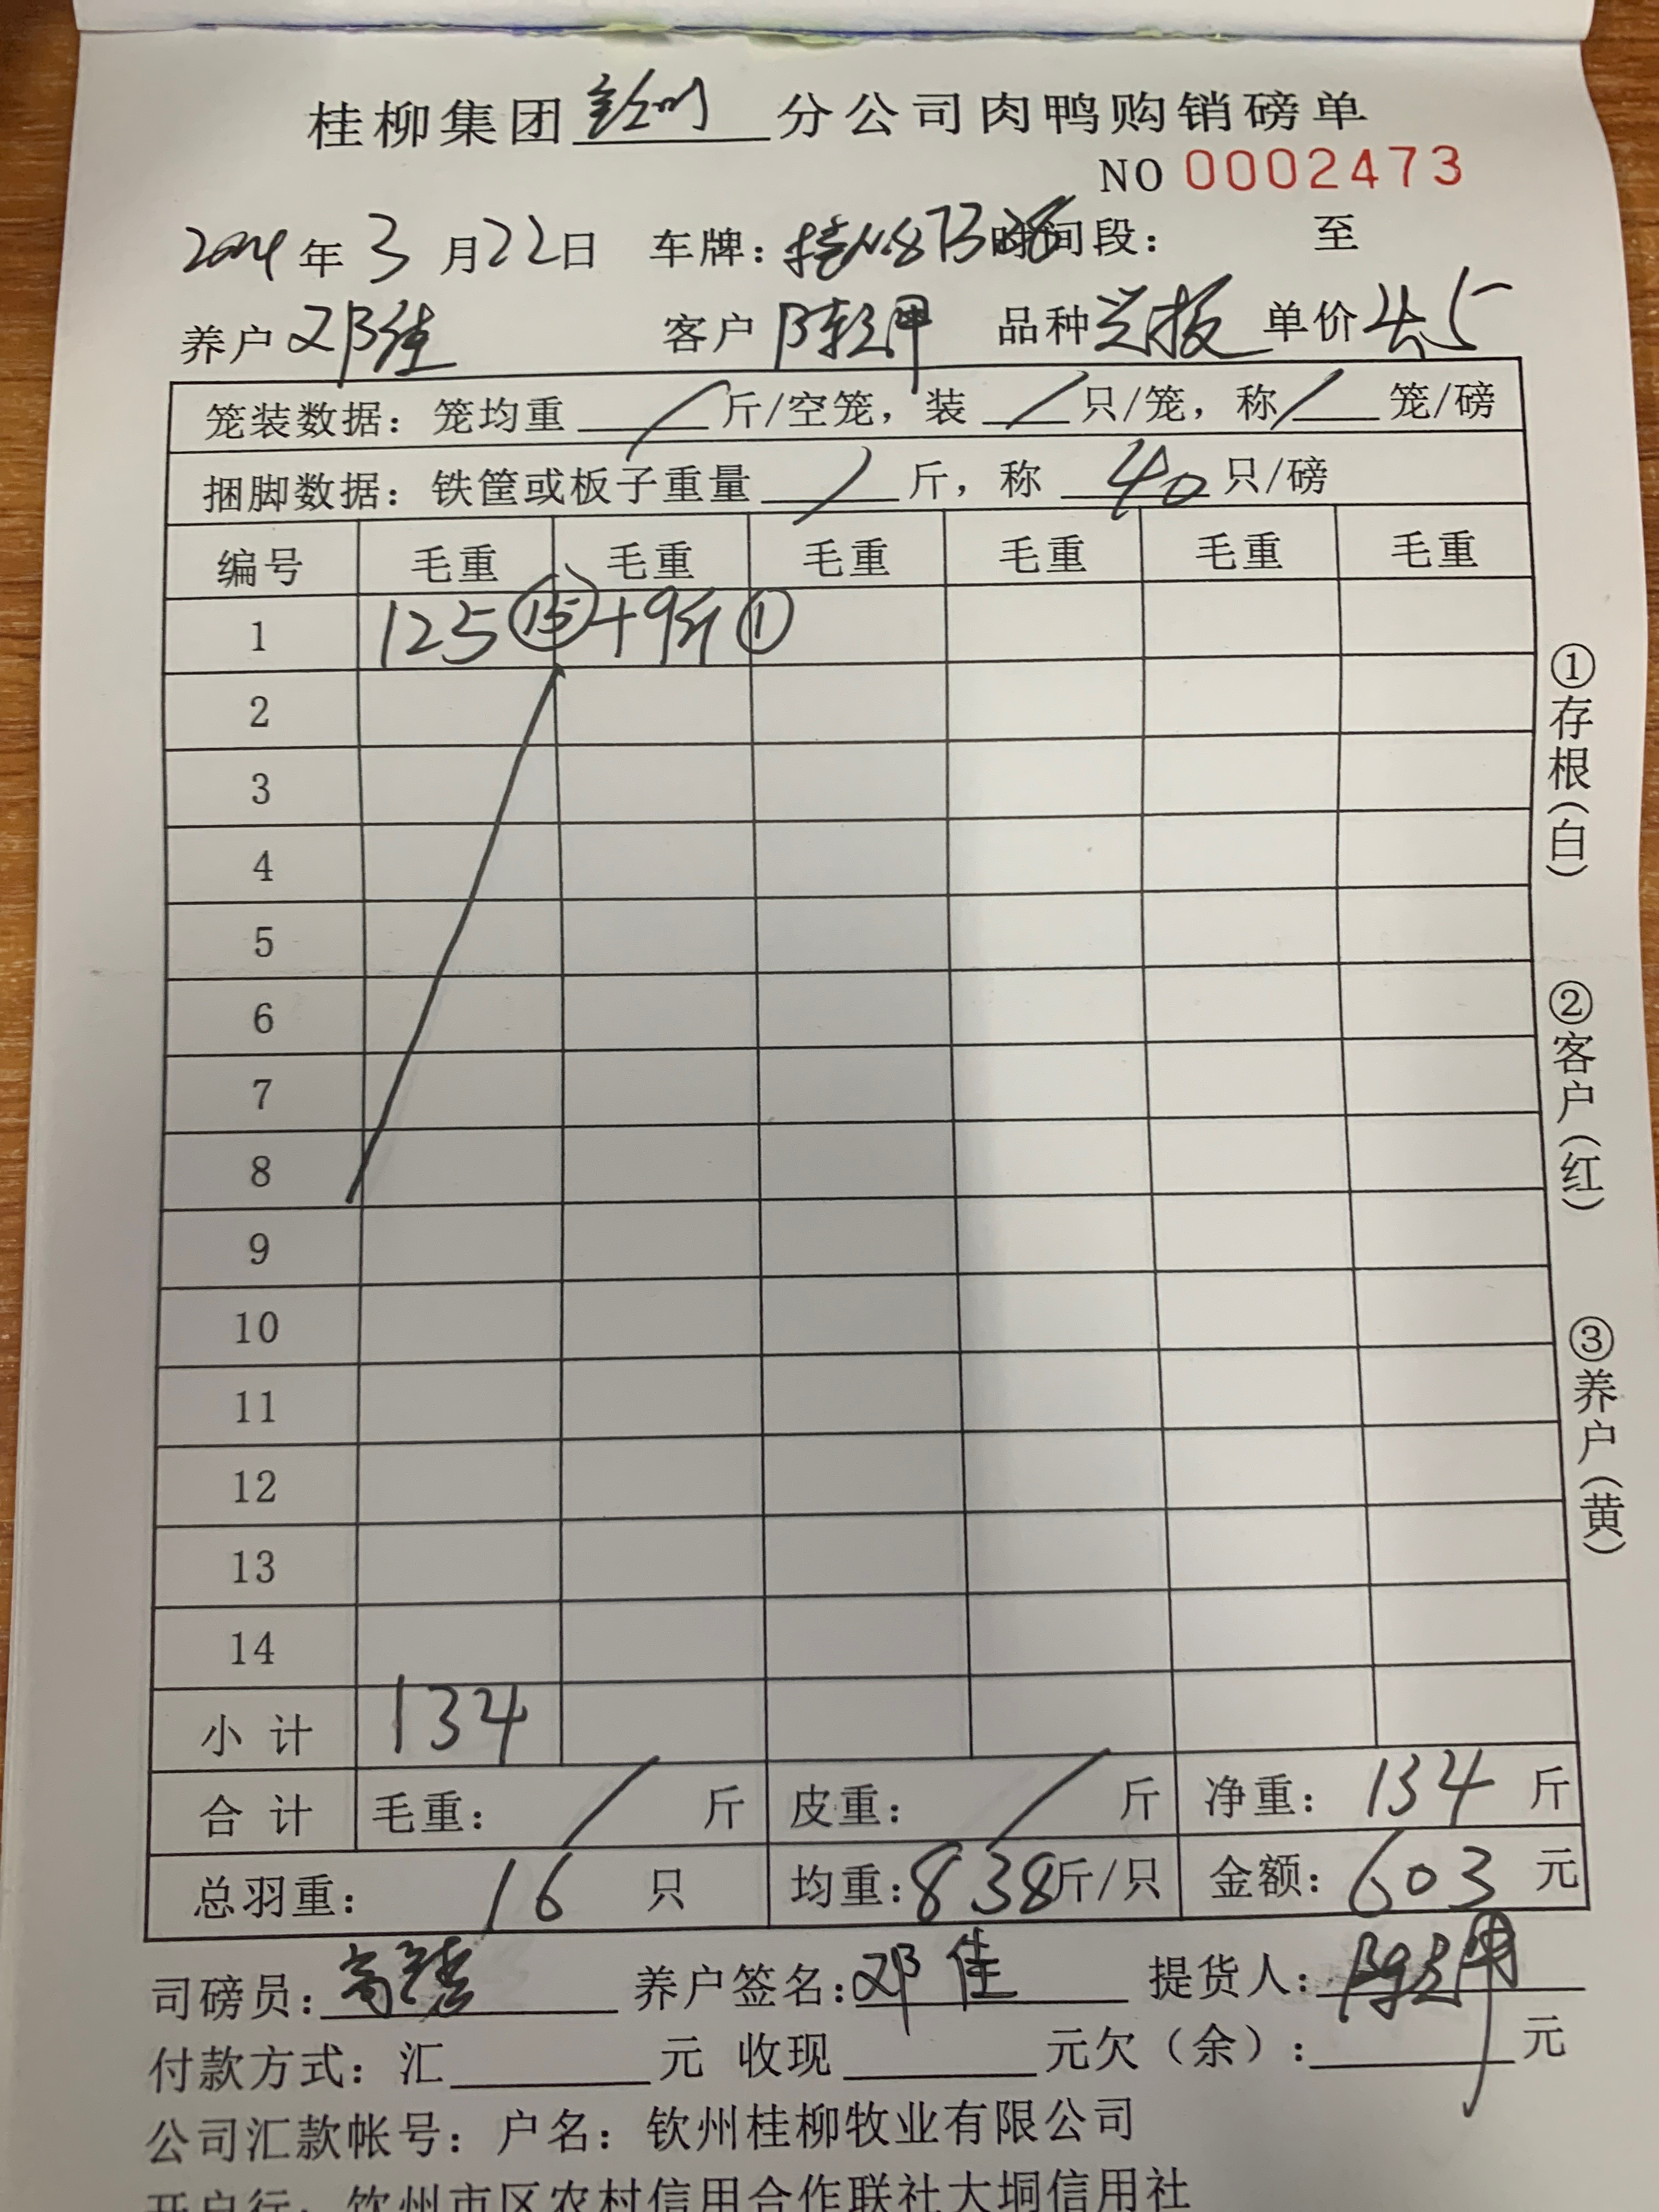 桂柳集团钦州分公司肉鸭购销磅单
NO 0002473
2024年3月22日 车牌: 时间段: 至
养户 邓佳 客户 品种 单价 4.5
笼装数据: 笼均重 / 斤/空笼, 装 / 只/笼, 称 / 笼/磅
捆脚数据: 铁筐或板子重量 / 斤, 称 40 只/磅
编号 毛重 毛重 毛重 毛重 毛重 毛重
1 125 ⑮ +9斤 ①
2
3
4
5
6
7
8
9
10
11
12
13
14
小计 134
合计 毛重: / 斤 皮重: / 斤 净重: 134 斤
总羽重: 16 只 均重: 8.38斤/只 金额: 603 元
司磅员: 养户签名: 邓佳 提货人:
付款方式: 汇 元 收现 元欠(余): 元
公司汇款帐号: 户名: 钦州桂柳牧业有限公司
开户行: 钦州市区农村信用合作联社大垌信用社
①存根(白)
②客户(红)
③养户(黄)